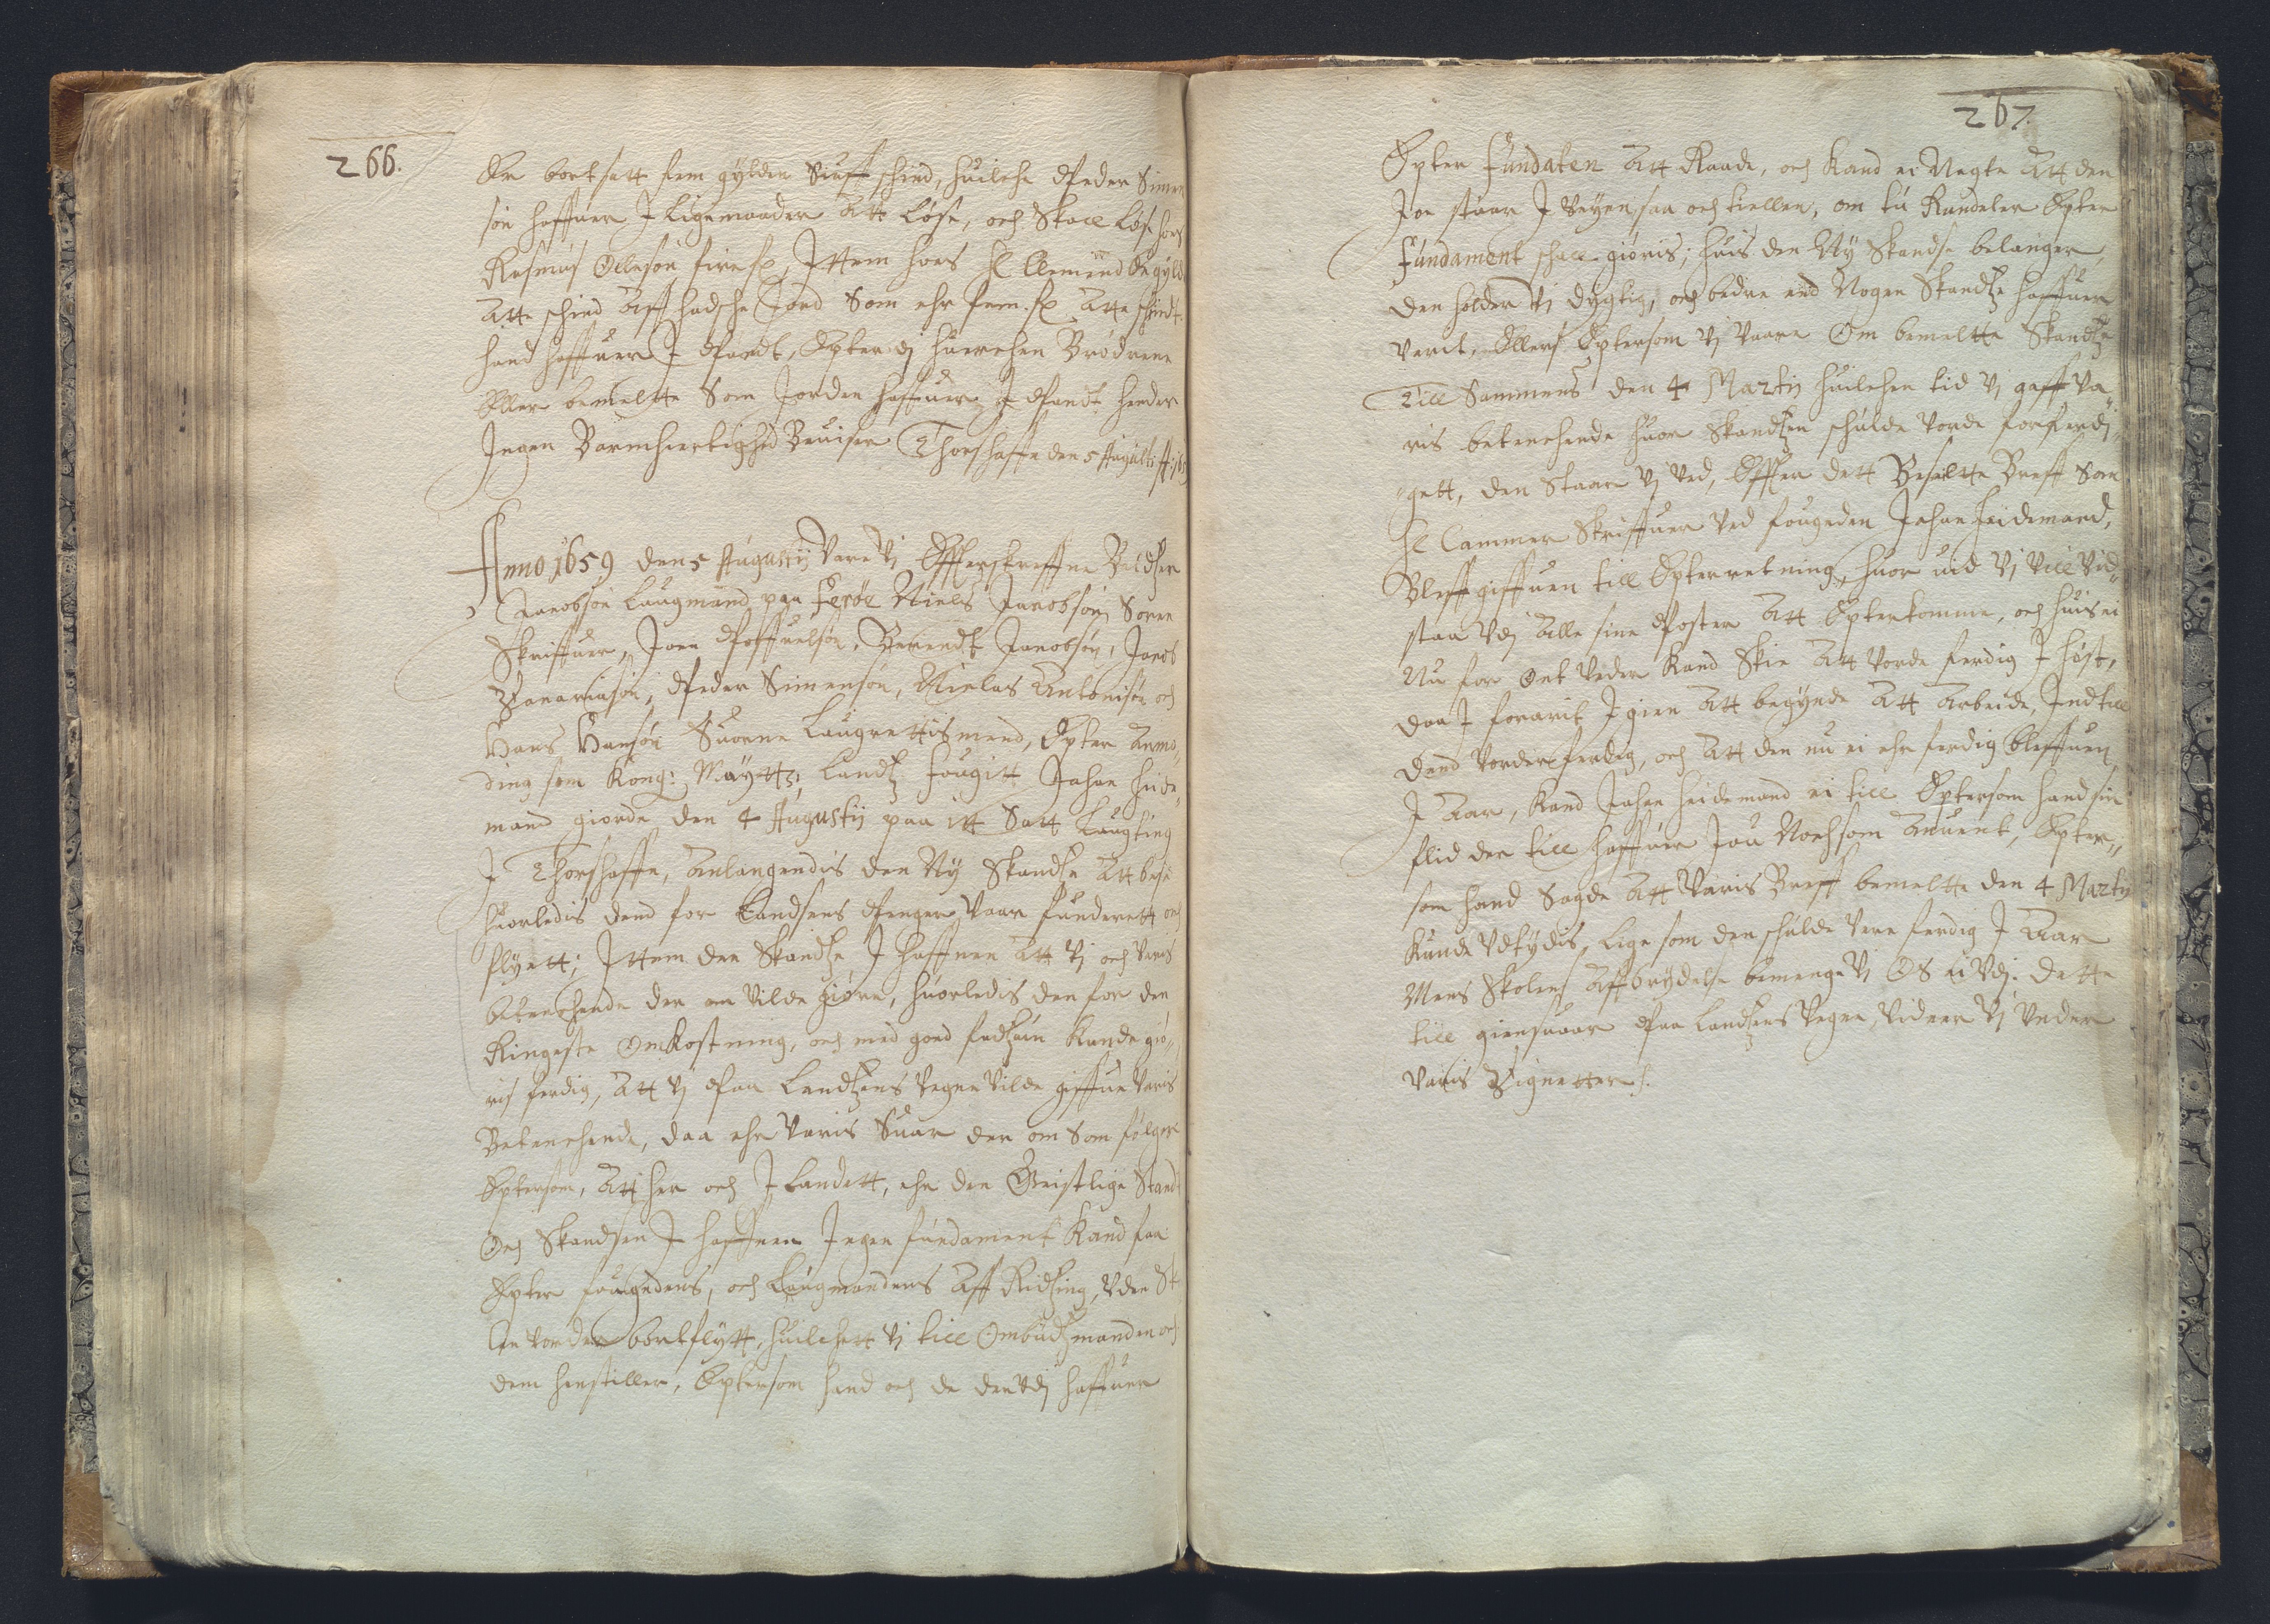 266.
Er bortsatt fem gylden Siuff schind, huilche Peder Simen
søn haffuer J Ligemaader Att Løse, och Skall Løse hos
Rasmus Ollesøn fire sk, Jttem hoes Hl Clemend En gyld
Atte schind Aff hadsche Jord Som ehr fem sk Atte schindt
hand haffuer J Pandt, Epter di huerchen Brødrene
Eller bemeltte Som Jorden haffuer J Pandt hender
Jngen Barmhiertighed Beuiser Thorshaffn den 5 Augusti
Anno 1659 den 5 Augustij Vare Vj Effterskreffne Baldtzer
Jacobsøn Laugmand paa Ferøe Niels Jacobsøn Soren
Skriffuer, Joen Poffuelsøn, Berendt Jacobsøn, Jacob
Zacariasøn, Peder Simensøn, Nielas Antonisen och
Hans Hansøn Suorne Laugrettismend, Epter Anmo„
ding som Kong: Maÿttz: Landtz Fougitt Johan Heide„
mand giorde den 4 Augustij paa itt Satt Laugting
J Thorshaffn, Anlangendis den Ny Skandtze Att bese
huorledis dend for Landsens Penger Vaar funderett och
flyett; Jttem den Skandtze J Haffnen Att Vj och Voris
betenchende der om Vilde giøre, huorledis den for den
Ringeste Omkostning, och med goed fudtzun Kunde giø„
ris ferdig, Att Vj Paa Landtzens Vegne Vilde giffue Voris
Betenchende, daa ehr Voris Suar der om Som følger
Eptersom, Att her och J Landett, ehr den Geistlige Stand
Och Skandsen J Haffnen Jngen fundament Kand faa
Epter fougedens, och Laugmandens Aff Ridtzing, Vden Sk
len Vorder bortflytt, huilchett Vj till Ombudtzmanden och
dem henstiller, Eptersom hand och de der Vdj haffuer
267.
Epter Fundaten Att Raade, och Kand ei Negte Att den
Joe staar J Veyen saa och tiellen, om tu Rundeler Epter
Fundament schall giøris; huis den Ny Skandse belanger,
den holder Vj dygtig, och bedre end Nogen Skandtze haffuer
Verit, Ellers Eptersom Vj Vaare Om bemeltte Skandtze
Till Sammens den 4 Martij huilchen tid Vj gaff Vo„
ris betenchende huor Skandtzen schulde Vorde forferdi„
„gett, den Staar Vj Ved, Effter dett Beseiltte Breff Som
Hl Cammer Skriffuer Ved fougeden Johan Heidemand,
Bleff giffuen till Epterretning, huor ued Vj Vill Vid„
staa Vdj Alle sine Poster Att Epterkomme, och huis ei
Nu for Ont Veder Kand Skie Att Vorde ferdig J høst,
daa J foraarit Jgien Att begynde Att Arbeide, Jndtill
dend Vorder ferdig, och Att den nu ei ehr ferdig bleffuen
J Aar, Kand Johan Heidemand ei till Eptersom hand sin
flid der till haffuer Jou Nochsom Anuent, Epter„
som hand Sagde Att Voris Breff bemeltte den 4 Martij
Kunde Vdtydis, Lige som den schulde Vere ferdig J Aar
Mens Skolens Affbrydelse bemenge Vj Os ei Vdj. Dette
till giensuaar Paa Landtzens Vegne, Vidner Vj Under
Voris Zignetter.